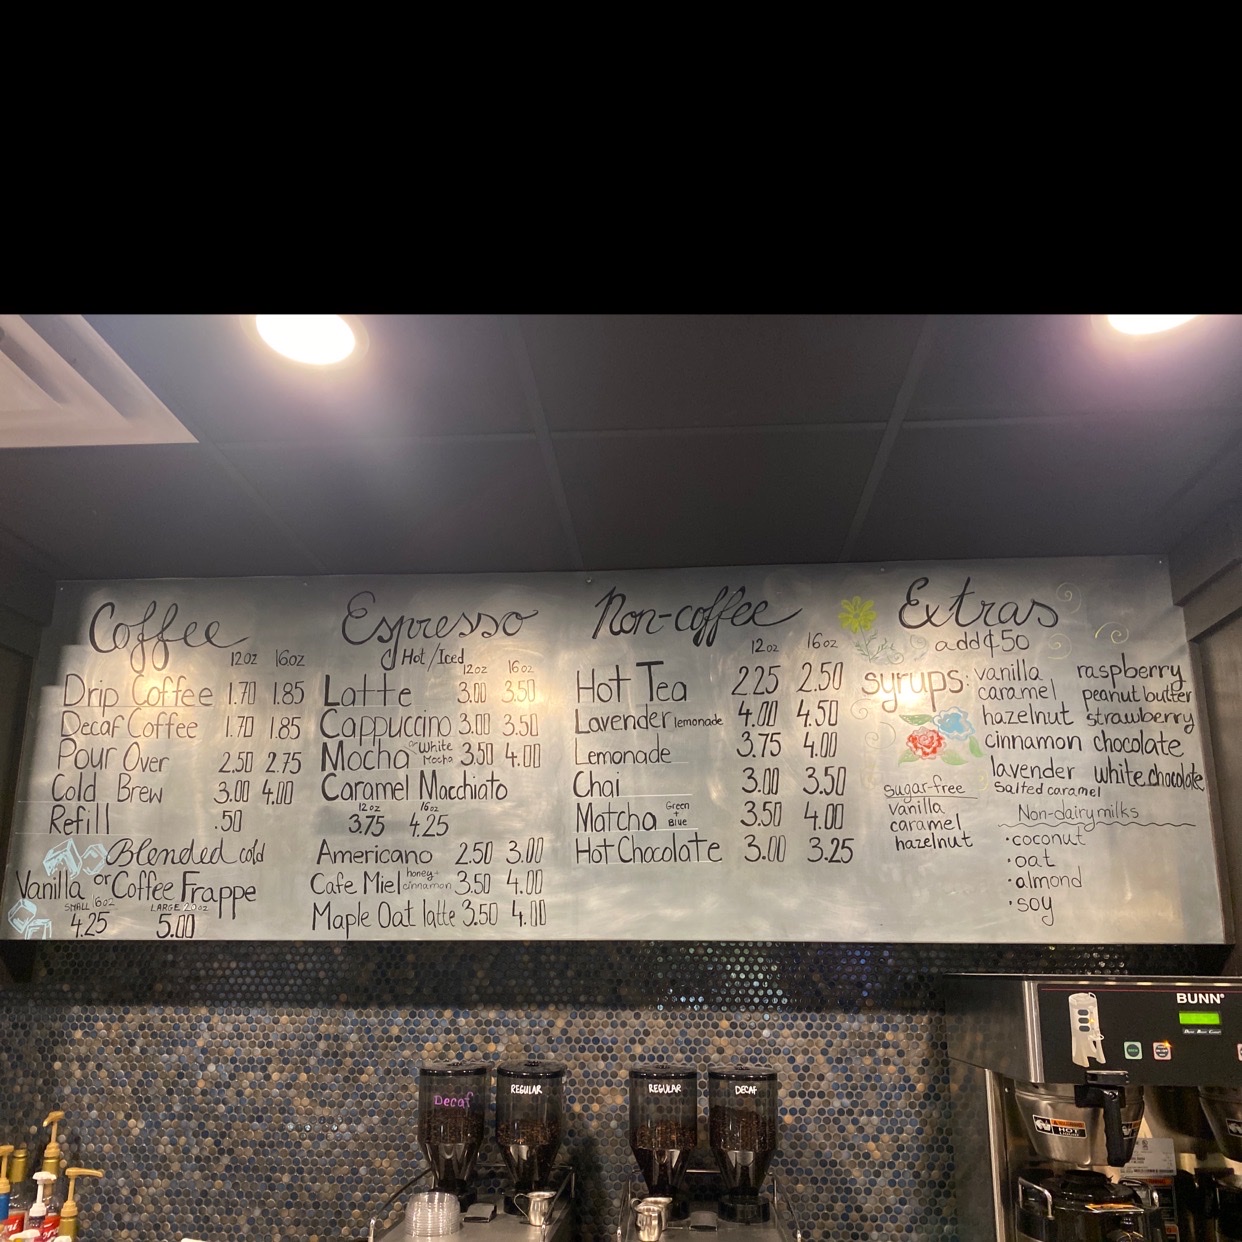 Coffee
12oz 16oz
Drip Coffee 1.70 1.85
Decaf Coffee 1.70 1.85
Pour Over 2.50 2.75
Cold Brew 3.00 4.00
Refill .50
Blended cold
Vanilla or Coffee Frappe
SMALL 16oz LARGE 20oz
4.25 5.00
Espresso
Hot/Iced
12oz 16oz
Latte 3.00 3.50
Cappuccino 3.00 3.50
Mocha or White Mocha 3.50 4.00
Caramel Macchiato
12oz 16oz
3.75 4.25
Americano 2.50 3.00
Cafe Miel honey + cinnamon 3.50 4.00
Maple Oat latte 3.50 4.00
Non-coffee
12oz 16oz
Hot Tea 2.25 2.50
Lavender lemonade 4.00 4.50
Lemonade 3.75 4.00
Chai 3.00 3.50
Matcha Green + Blue 3.50 4.00
Hot Chocolate 3.00 3.25
Extras
add ¢50
syrups: vanilla raspberry
caramel peanut butter
hazelnut strawberry
cinnamon chocolate
lavender white chocolate
salted caramel
sugar-free
vanilla
caramel
hazelnut
Non-dairy milks
· coconut
· oat
· almond
· soy
Decaf
REGULAR
REGULAR
DECAF
BUNN
HOT